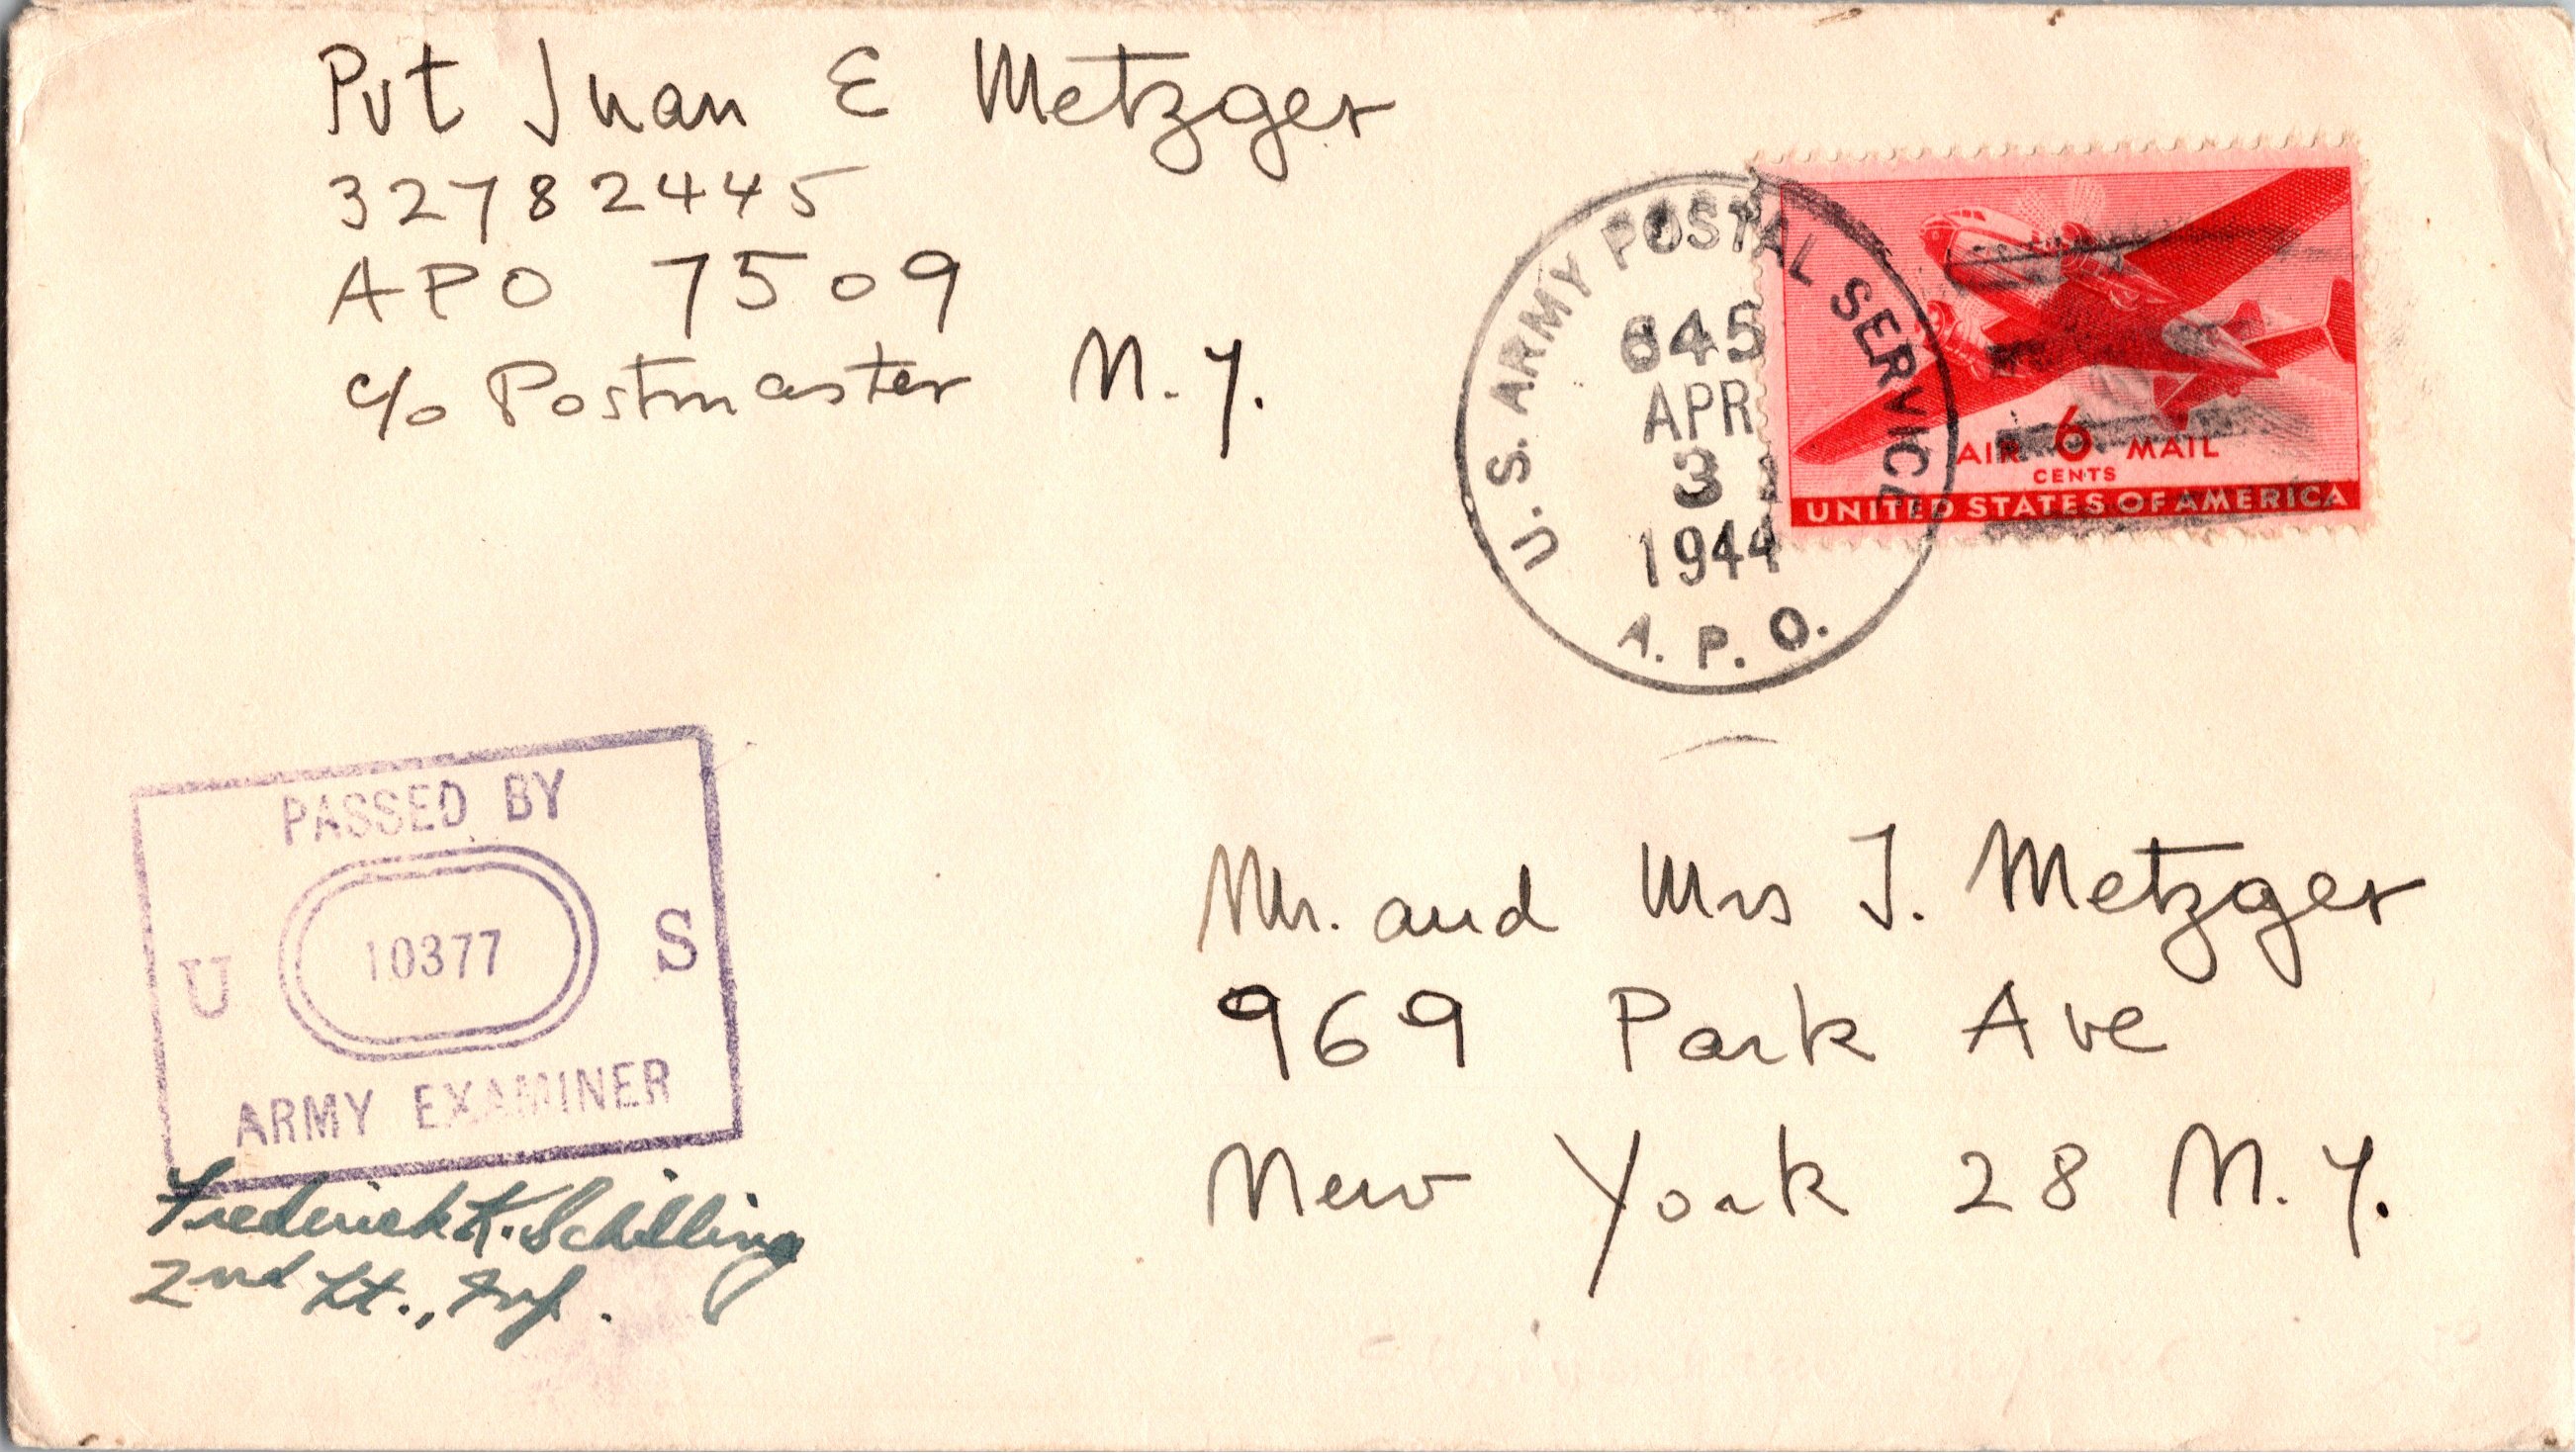 Pvt Juan E Metzger
32782445
APO 7509
c/o Postmaster N.Y.
U.S. ARMY POSTAL SERVICE
645
APR
3
1944
A.P.O.
AIR 6 MAIL
CENTS
UNITED STATES OF AMERICA
PASSED BY
U 10377 S
ARMY EXAMINER
Frederick K. Schilling
2nd Lt., Inf.
Mr. and Mrs J. Metzger
969 Park Ave
New York 28 N.Y.